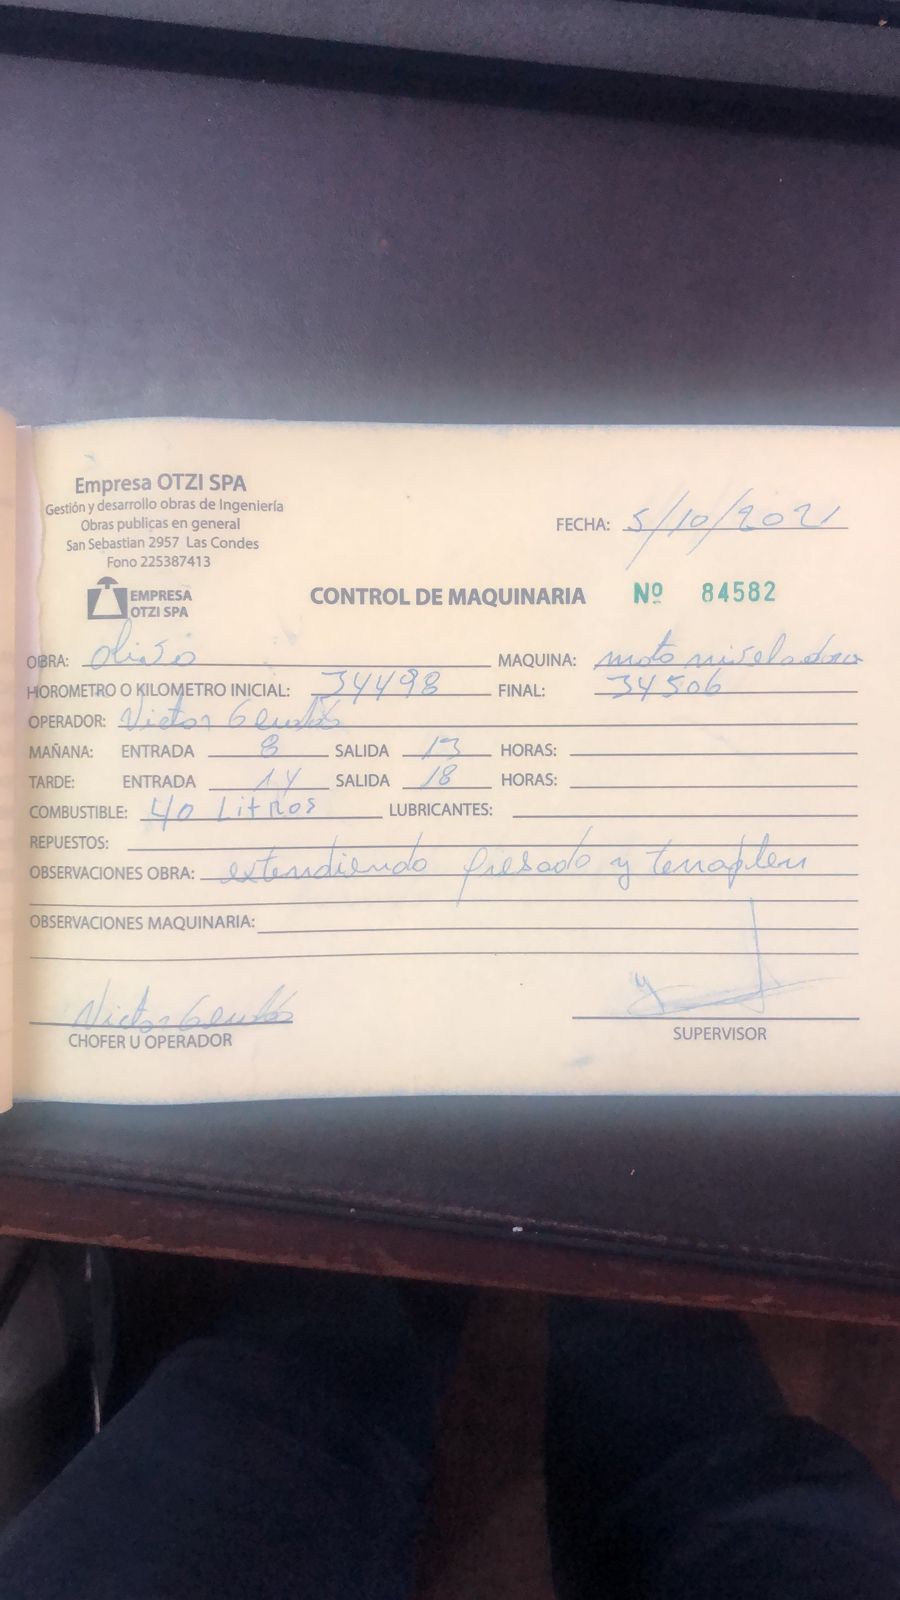 Empresa OTZI SPA
Gestión y desarrollo obras de Ingeniería
Obras publicas en general
San Sebastian 2957 Las Condes
Fono 225387413
FECHA: 5/10/2021
EMPRESA
OTZI SPA
CONTROL DE MAQUINARIA Nº 84582
OBRA: MAQUINA: moto niveladora
HOROMETRO O KILOMETRO INICIAL: 34498 FINAL: 34506
OPERADOR: Victor
MAÑANA: ENTRADA 8 SALIDA 13 HORAS:
TARDE: ENTRADA 14 SALIDA 18 HORAS:
COMBUSTIBLE: 40 Litros LUBRICANTES:
REPUESTOS:
OBSERVACIONES OBRA: extendiendo y terraplen
OBSERVACIONES MAQUINARIA:
Victor
CHOFER U OPERADOR
SUPERVISOR